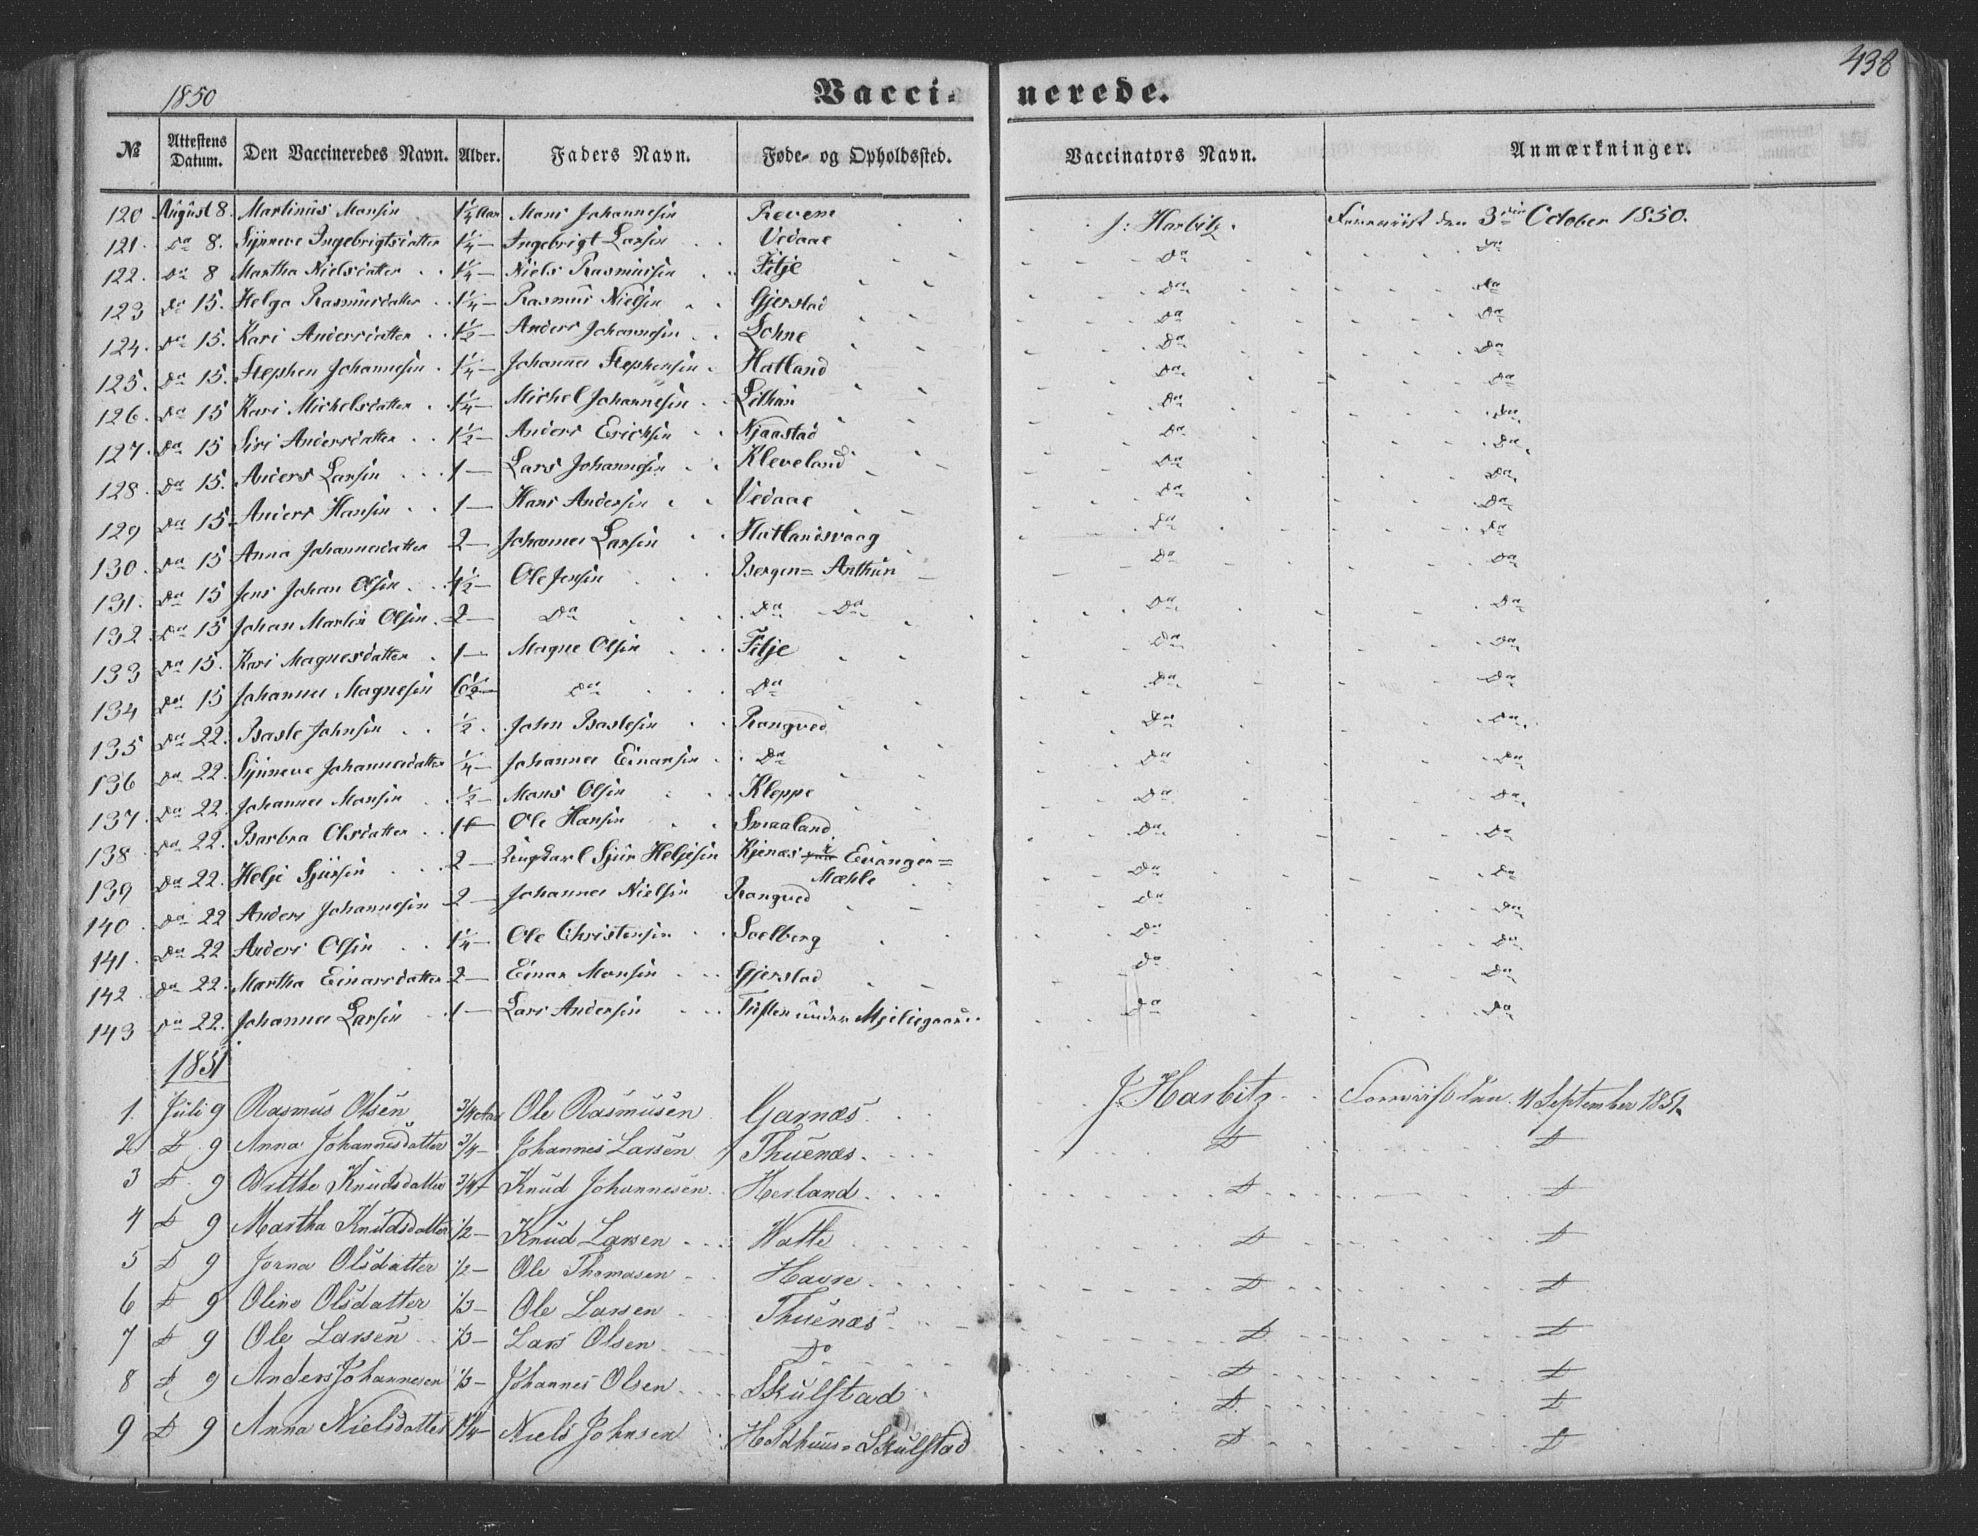 438
1850
Vaccinerede.
№ Attestens Datum. Den Vaccineredes Navn. Alder. Faders Navn. Føde- og Opholdssted. Vaccinators Navn. Anmærkninger.
120 August 8. Martinus Monsen 1¼ Aar Mons Johannesen Revem J: Harbitz. Fremviist den 3die October 1850.
121. Do 8. Synneve Ingebrigtsdatter 1¼ — Ingebrigt Larsen Vedaae Do Do
122. Do 8 Martha Nielsdatter 1¼ — Niels Rasmusen Filje Do Do
123 Do 15. Helga Rasmusdatter 1¼ — Rasmus Nielsen Gjerstad Do Do
124. Do 15. Kari Andersdatter 1½ — Anders Johannesen Lohne Do Do
125. Do 15. Stephen Johannesen 1¼ — Johannes Stephensen Hatland Do Do
126. Do 15 Kari Michelsdatter 1¼ — Michel Johannesen Do Do
127. Do 15 Siri Andersdatter 1½ — Anders Ericksen Njaastad Do Do
128. Do 15. Anders Larsen 1 — Lars Johannesen Kleveland Do Do
129 Do 15 Anders Hansen 1 — Hans Andersen Vedaae Do Do
130. Do 15 Anna Johannesdatter 2 — Johannes Larsen Hatlandsvaag Do Do
131. Do 15 Jens Johan Olsen 4½ — Ole Jensen Bergen= Anthun Do Do
132 Do 15 Johan Martin Olsen 2 — Do Do Do Do Do
133 Do 15. Kari Magnesdatter 1 — Magne Olsen Filje Do Do
134 Do 15 Johannes Magnesen 6½ — Do Do Do Do
135 Do 22. Baste Johnsen ½ John Bastesen Rongved Do Do
136 Do 22. Synneve Johannesdatter ¼ — Johannes Einarsen Do Do Do
137. Do 22. Johannes Monsen ½ — Mons Olsen Kleppe Do Do
138 Do 22. Barbra Olsdatter Ole Hansen Smaaland Do Do
139 Do 22. Helje Sjursen 2 — Ungkarl Sjur Heljesen Kjenæs i Evanger= Do Do
Mæhle
140. Do 22 Anders Johannesen 2 — Johannes Nielsen Rongved Do Do
141. Do 22 Anders Olsen 1¼ — Ole Christensen Soelberg Do Do
142 Do 22. Martha Einarsdatter 2 — Einar Monsen Gjerstad Do Do
143 Do 22. Johannes Larsen 1 — Lars Andersen Tuften under Mjeldegaard. Do Do
1851
1. Juli 9 Rasmus Olsen 3/4 Aar Ole Rasmusen Garnæs J Harbitz Fremviist den 11 September 1851.
2. D 9 Anna Johannesdatter 3/4 — Johannes Larsen Thuenæs. D D
3 D. 9 Brithe Knudsdatter 3/4 Knud Johannesen Herland. D D
4 D 9 Martha Knudsdatter 1/2 — Knud Larsen Watle D D
5 D 9 Jorna Olsdatter 1/2 — Ole Thomasen Havre. D D
6 D 9 Oline Olsdatter 1/3 — Ole Larsen Thuenæs D D
7 D 9 Ole Larsen 1/3 — Lars Olsen Do D D
8 D 9 Anders Johannesen 1/3 — Johannes Olsen Skulstad D D
9 D 9 Anna Nielsdatter 1¼ — Niels Johnsen Holdhuus= Skulstad D D